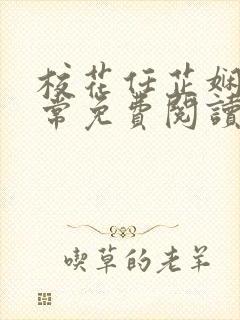 校花任芷嫻
常免費閱讀
喫草的老羊